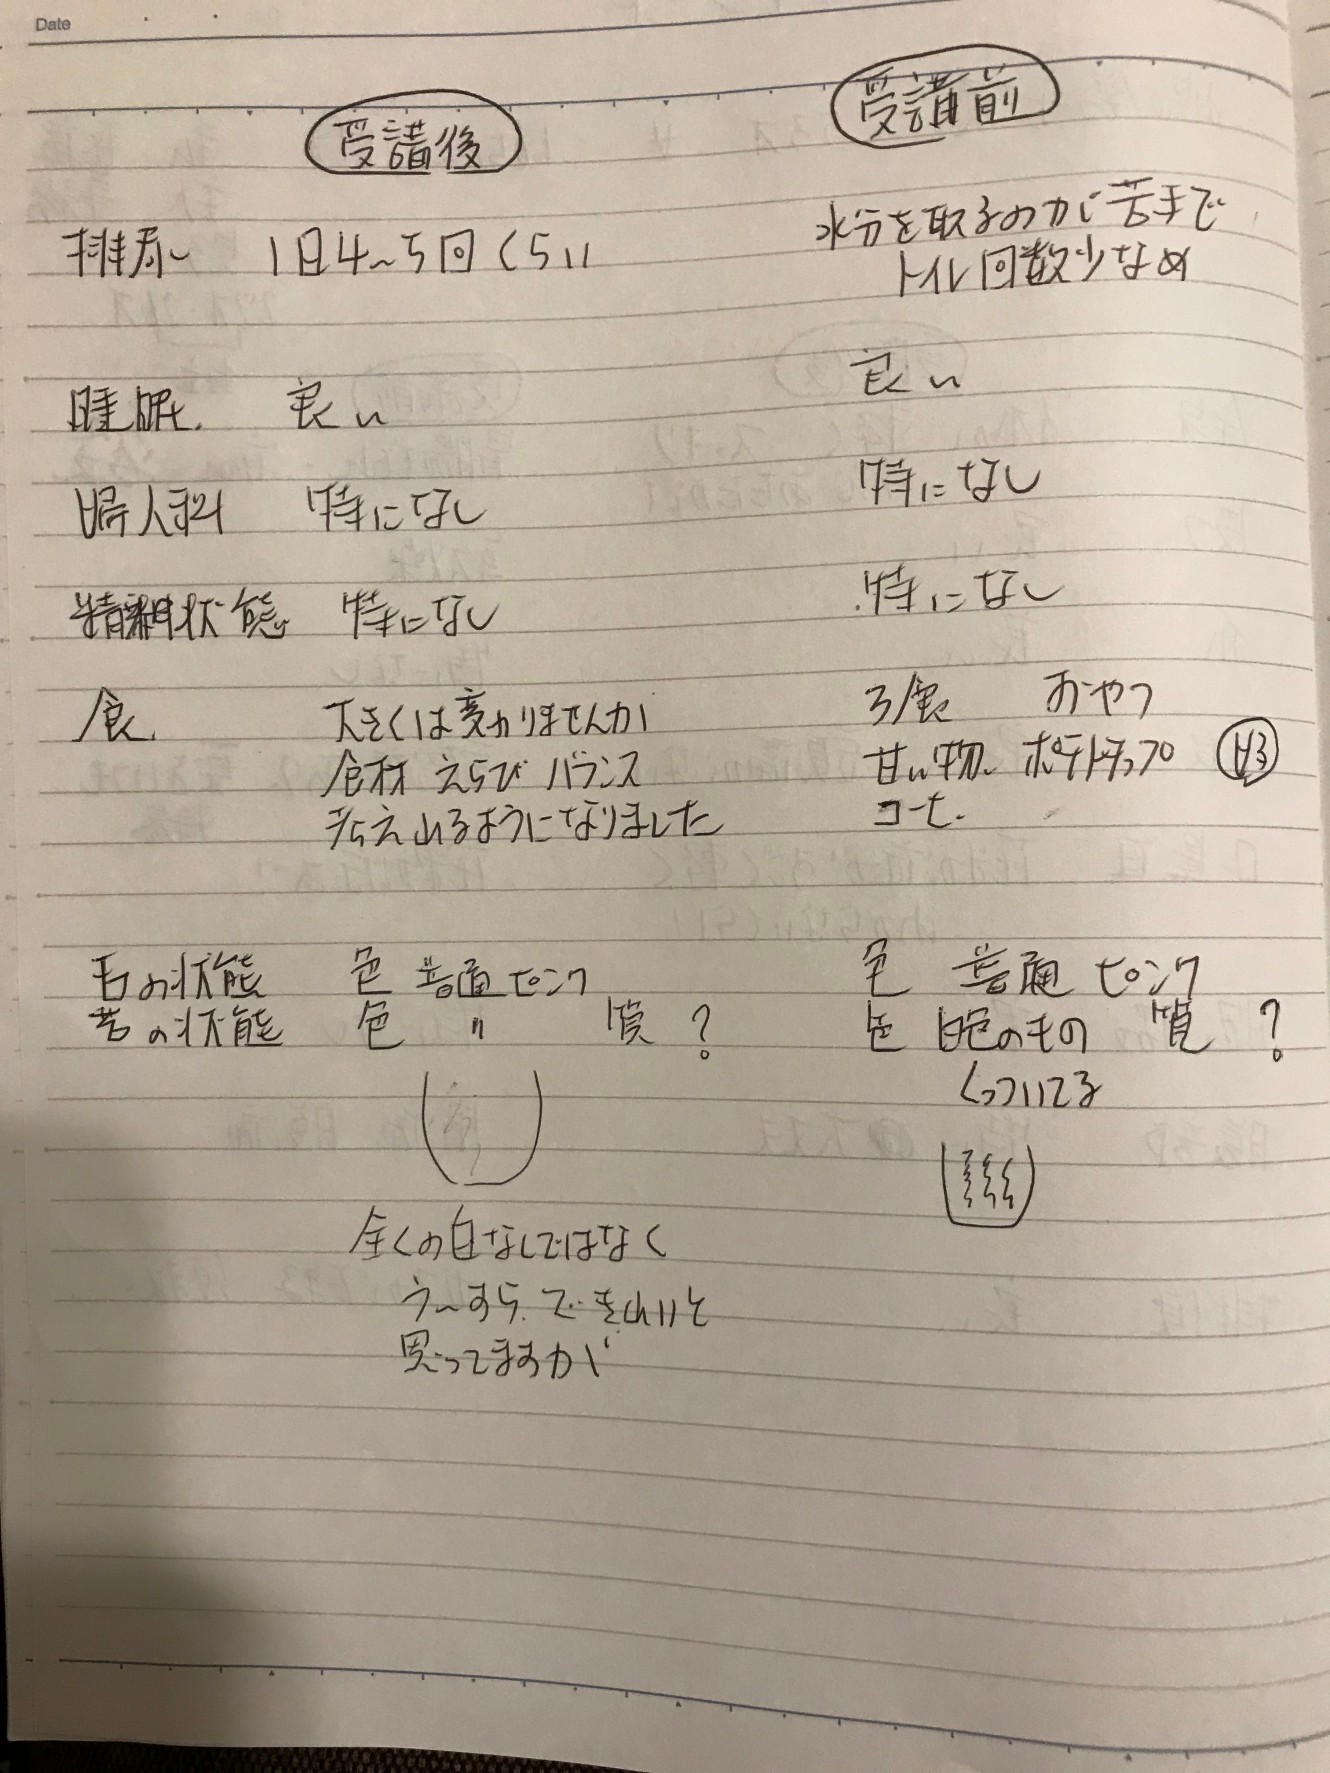 Date
受講後 受講前
排尿 1日4~5回くらい 水分を取るのが苦手で
トイレ回数少なめ
睡眠 良い 良い
婦人科 特になし 特になし
精神状態 特になし 特になし
食 大きくは変わりませんが 3食 おやつ
食材 えらび バランス 甘い物 ポテトチップ
考え れるようになりました コーヒー
舌の状態 色 普通ピンク 色 普通 ピンク
苔の状態 色 〃 質 ? 色 白色のもの 質 ?
くっついてる
全くの白なしではなく
う~すら で きれいと
思ってますが